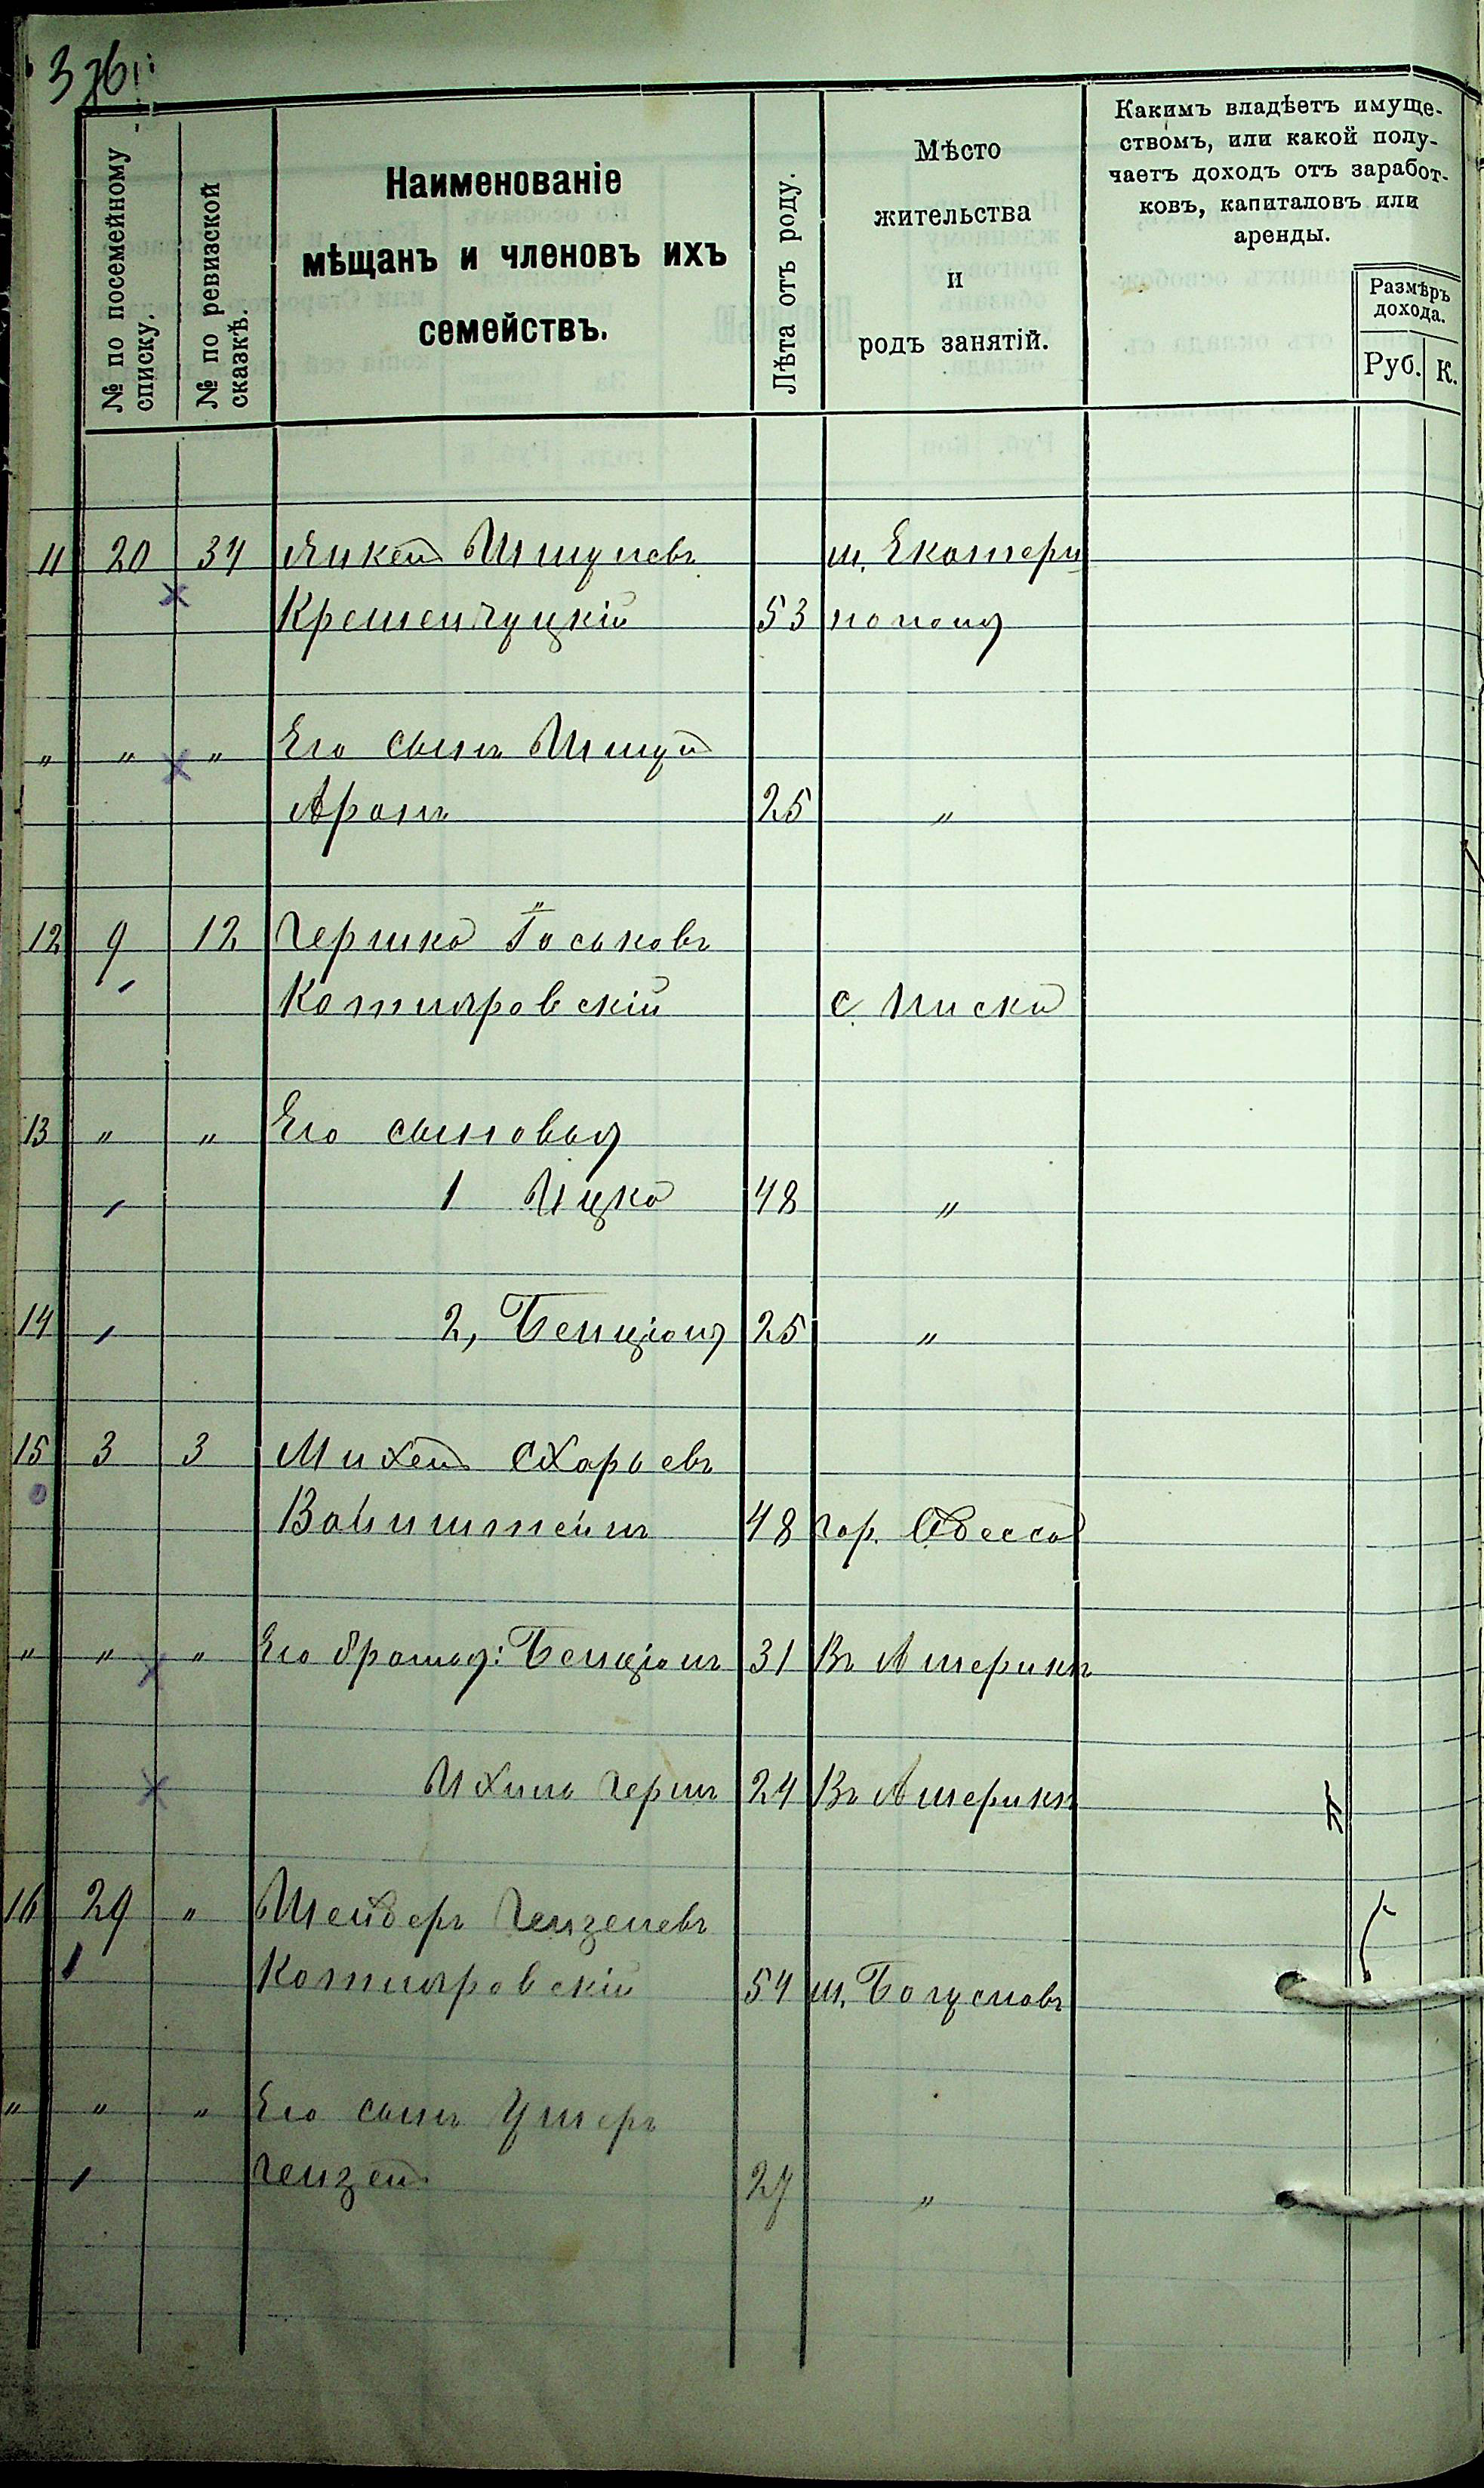 376
№ по посемейному списку.
№ по ревизской сказкѣ.
Наименованіе
мѣщанъ и членовъ ихъ
семействъ.
Лѣта отъ роду.
Мѣсто
жительства
и
родъ занятій.
Какимъ владѣетъ имуще-
ствомъ, или какой полу-
чаетъ доходъ отъ заработ-
ковъ, капиталовъ или
аренды.
Размѣръ
дохода.
Руб. К.
11 20 34 Янкель Шмулевъ м. Екатери
Кременчуцкій 53 нополь
" " " Его сынъ Шмуль
Аронъ 25 "
12 9 12 Гершко Іоськовъ
Котляровскій с. Писки
13 " " Его сыновья
1 Ицко 48 "
14 2, Бенціонъ 25 "
15 3 3 Михель Схарьевъ
Вайнштейнъ 48 гор. Одесса
" " " Его братья: Бенціонъ 31 Въ Америкѣ
Ихиль Гершъ 24 Въ Америкѣ
16 29 " Шендеръ Гензелевъ
Котляровскій 54 м. Богуславъ
" " " Его сынъ Ушеръ
Гензель 27 "